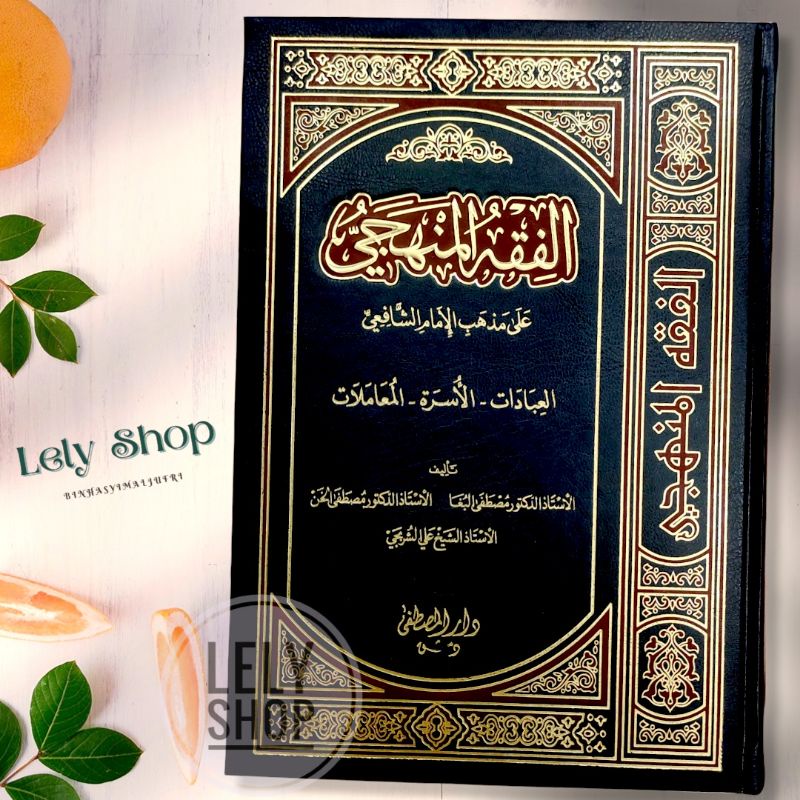 الفِقْهُ المَنْهَجِيُّ
عَلَى مَذْهَبِ الإِمَامِ الشَّافِعِيِّ
العِبَادَات - الأُسْرَة - المُعَامَلَات
تأليف
الأستاذ الدكتور مصطفى البُغا الأستاذ الدكتور مصطفى الخن
الأستاذ الشيخ علي الشربجي
دار المصطفى
الفقه المنهجي
Lely Shop
BINHASYIMALJUFRI
LELY
SHOP